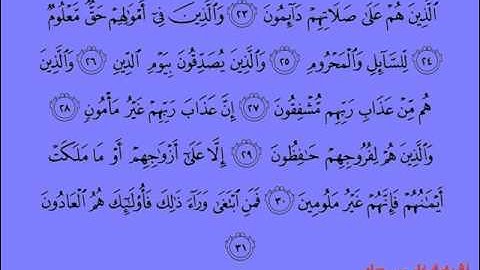 ٱلَّذِينَ هُمْ عَلَىٰ صَلَاتِهِمْ دَآئِمُونَ ٢٣ وَٱلَّذِينَ فِىٓ أَمْوَٰلِهِمْ حَقٌّ مَّعْلُومٌ
٢٤ لِّلسَّآئِلِ وَٱلْمَحْرُومِ ٢٥ وَٱلَّذِينَ يُصَدِّقُونَ بِيَوْمِ ٱلدِّينِ ٢٦ وَٱلَّذِينَ
هُم مِّنْ عَذَابِ رَبِّهِم مُّشْفِقُونَ ٢٧ إِنَّ عَذَابَ رَبِّهِمْ غَيْرُ مَأْمُونٍ ٢٨
وَٱلَّذِينَ هُمْ لِفُرُوجِهِمْ حَٰفِظُونَ ٢٩ إِلَّا عَلَىٰٓ أَزْوَٰجِهِمْ أَوْ مَا مَلَكَتْ
أَيْمَٰنُهُمْ فَإِنَّهُمْ غَيْرُ مَلُومِينَ ٣٠ فَمَنِ ٱبْتَغَىٰ وَرَآءَ ذَٰلِكَ فَأُو۟لَٰٓئِكَ هُمُ ٱلْعَادُونَ
٣١